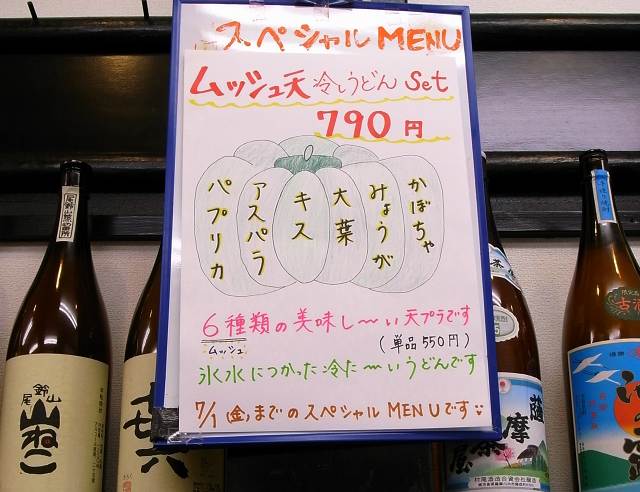 スペシャルMENU
ムッシュ天 冷しうどん Set
790円
かぼちゃ
みょうが
大葉
キス
アスパラ
パプリカ
6種類の美味し〜い天プラです
ムッシュ
(単品550円)
氷水につかった冷た〜いうどんです
7/1(金)までのスペシャルMENUです
尾鈴山
山ねこ
薩摩
茶屋
村尾酒造合資会社醸造